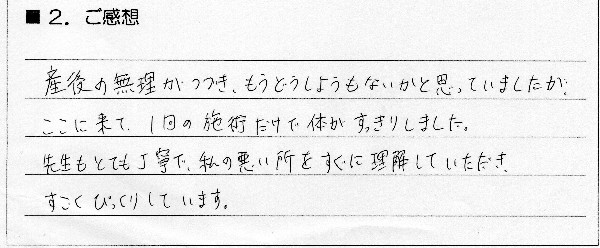 ■2. ご感想
産後の無理がつづき、もうどうしようもないかと思っていましたが、
ここに来て、1回の施術だけで体がすっきりしました。
先生もとても丁寧で、私の悪い所をすぐに理解していただき、
すごくびっくりしています。